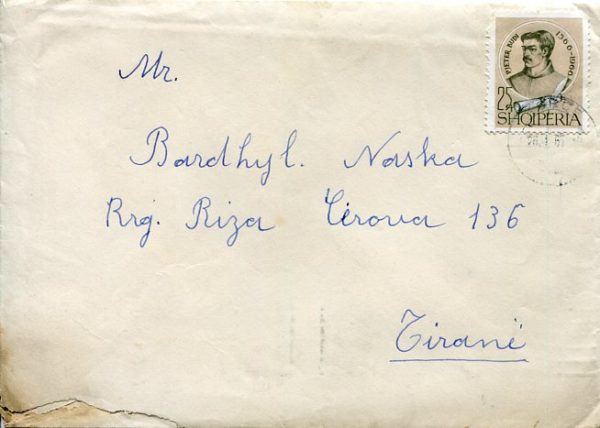 PJETER BUDI 1566-1966
25
SHQIPERIA
Mr.
Bardhyl. Naska
Rrg. Riza Cërova 136
Tiranë